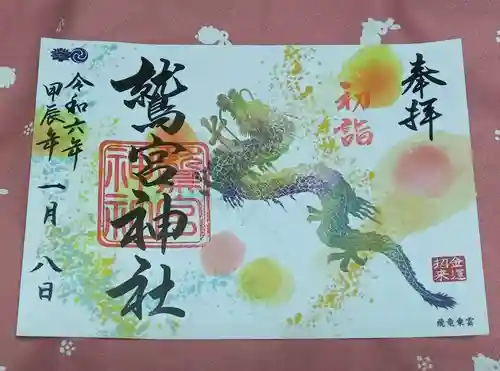 奉拝
初詣
鷲宮神社
鷲宮神社
令和六年
甲辰年
一月八日
金運
招来
飛竜乗雲